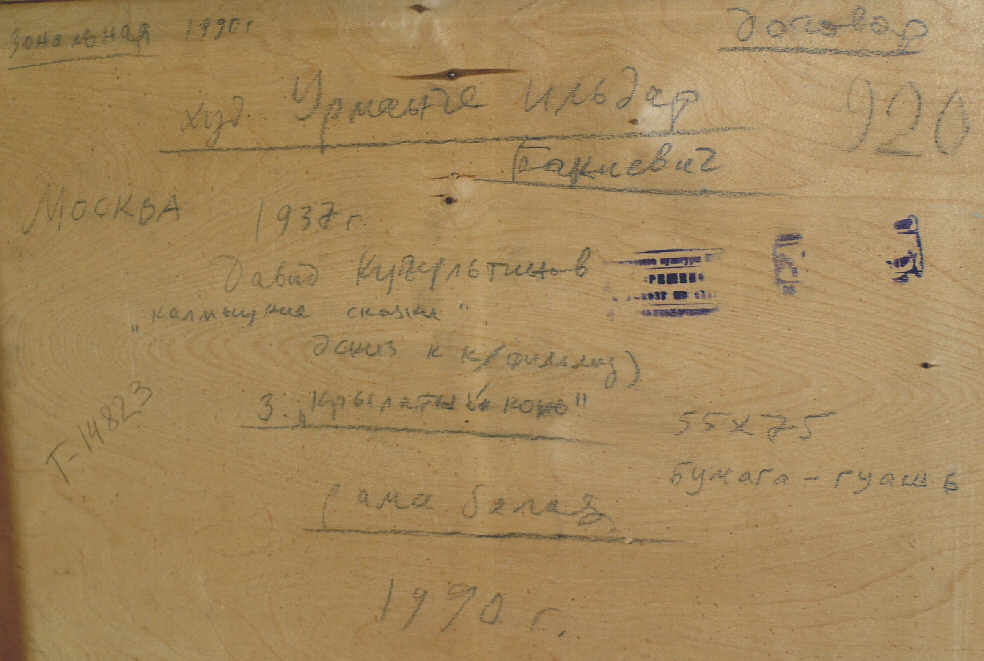 Зональная 1990г
Договор
худ. Урманче Ильдар
920
Бакиевич
Москва
1937г.
Давид Кугультинов
"калмыцкие сказки"
Эскиз к к/фильму)
3. "Крылатый конь"
55х75
Т-14823
Бумага - гуашь
рама белая
1990 г.